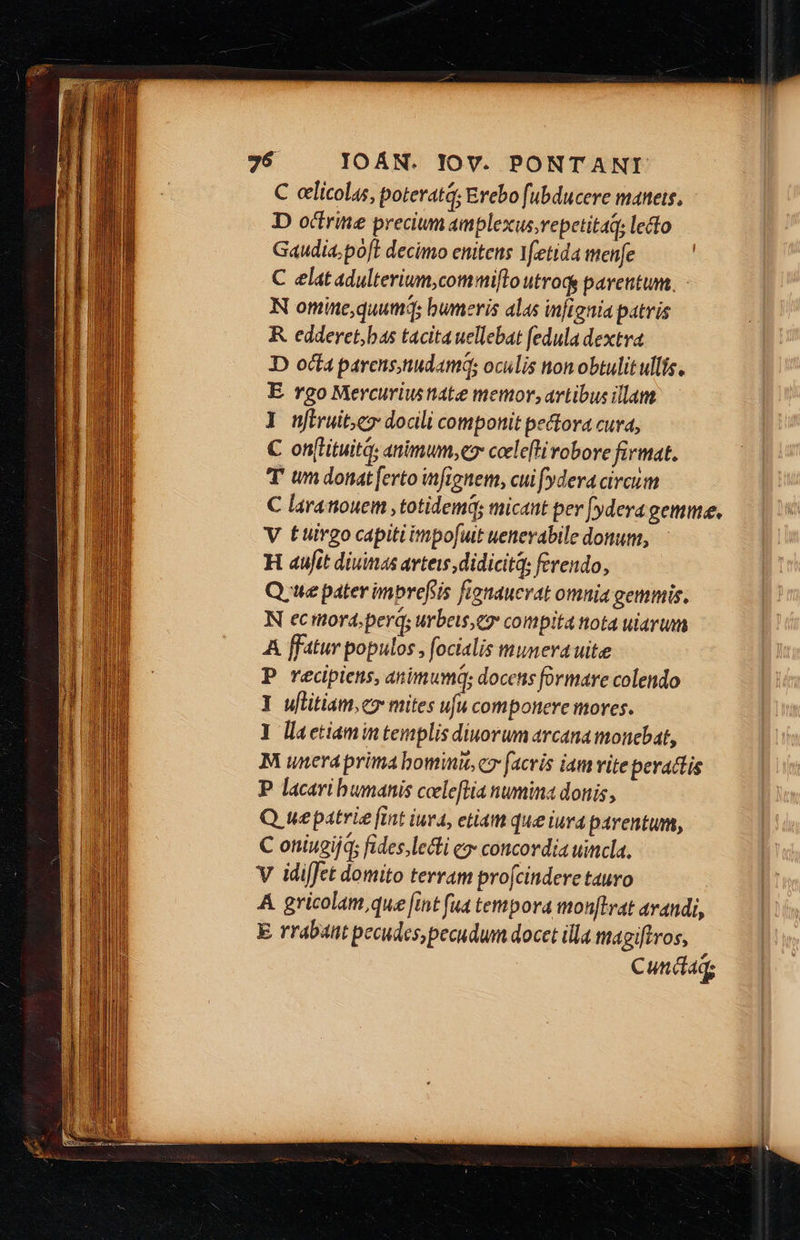 76 IOAN. IOV. PONTANI
C œlicolas, poteratq́; Erebo ſubducere maneis.
D octrinæ precium amplexus, repetitaq́; lecto
Gaudia, poſt decimo enitens Yſætida menſe
C elat adulterium, commiſto utroq; parentum.
N omine, quumq́; humeris alas inſignia patris
R edderet, has tacita uellebat ſedula dextra
D octa parens, nudamq́; oculis non obtulit ullis.
E rgo Mercurius natæ memor, artibus illam
I nſtruit, & docili componit pectora cura,
C onſtituitq́; animum, & cœleſti robore firmat.
T um donat ſerto inſignem, cui ſydera circum
C lara nouem, totidemq́; micant per ſydera gemmæ.
V t uirgo capiti impoſuit uenerabile donum,
H auſit diuinas arteis, didicitq́; ferendo,
Q uæ pater impreſsis ſignauerat omnia gemmis.
N ec mora, perq́; urbeis, & compita nota uiarum
A ffatur populos, ſocialis munera uitæ
P recipiens, animumq́; docens formare colendo
I uſtitiam, & mites uſu componere mores.
I lla etiam in templis diuorum arcana monebat,
M unera prima hominũ, & ſacris iam rite peractis
P lacari humanis cœleſtia numina donis,
Q uæ patriæ ſint iura, etiam quæ iura parentum,
C oniugijq́; fides, lecti & concordia uincla.
V idiſſet domito terram proſcindere tauro
A gricolam, quæ ſint ſua tempora monſtrat arandi,
E rrabant pecudes, pecudum docet illa magiſtros,
Cunctaq́;